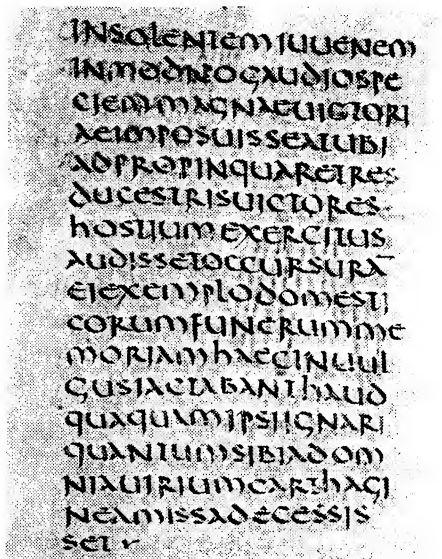 INSOLENTEMIUUENEM
INMODICOGAUDIOSPE
CIEMMAGNAEUICTORI
AEIMPOSUISSEATUBI
ADPROPINQUARETRES
DUCESTRISUICTORES
HOSTIUMEXERCITUS
AUDISSETOCCURSURĀ
EIEXEMPLODOMESTI
CORUMFUNERUMME
MORIAMHAECINUUL
GUSIACTABANTHAUD
QUAQUAMIPSIIGNARI
QUANTUMSIBIADOM
NIAUIRIUMCARTHAGI
NEAMISSADECESSIS
SET